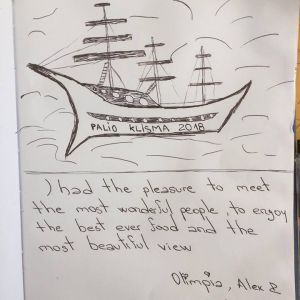 PALIO KLISMA 2018
I had the pleasure to meet
the most wonderful people, to enjoy
the best ever food and the
most beautiful view
Olimpia, Alex